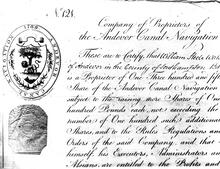 No. 128.
Company of Proprietors of
the Andover Canal Navigation
These are to certify, that William Steele
of Andover in the County of Southampton
is a Proprietor of One Three hundred and fiftieth
Share of the Andover Canal Navigation
subject to the raising more Shares of One
hundred Pounds each, not exceeding the
number of One hundred such additional
Shares, and to the Rules, Regulations and
Orders of the said Company, and that
himself, his Executors, Administrators
Assigns, are entitled to the Profits and